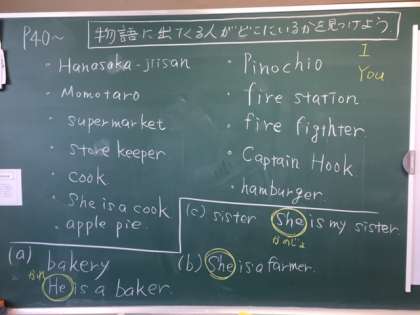 P40~
物語に出てくる人がどこにいるかを見つけよう
I
You
・Hanasaka-jiisan
・Momotaro
・supermarket
・store keeper
・cook
・She is a cook
・apple pie.
・Pinochio
・fire station
・fire figther.
・Captain Hook
・hamburger.
(a) bakery
かれ
He is a baker.
(b) She is a farmer.
(c) sister She is my sister.
かのじょ